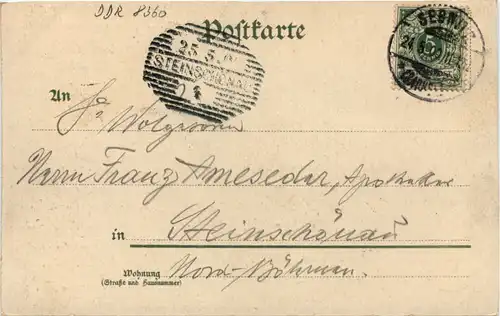 DDR 8360
Postkarte
SEBNITZ
25 5
STEINSCHÖNAU
An
Sr Wolgeboren
Herrn Franz Ameseder, Apotheker
in Steinschönau
Wohnung Nord-Böhmen.
(Straße und Hausnummer)